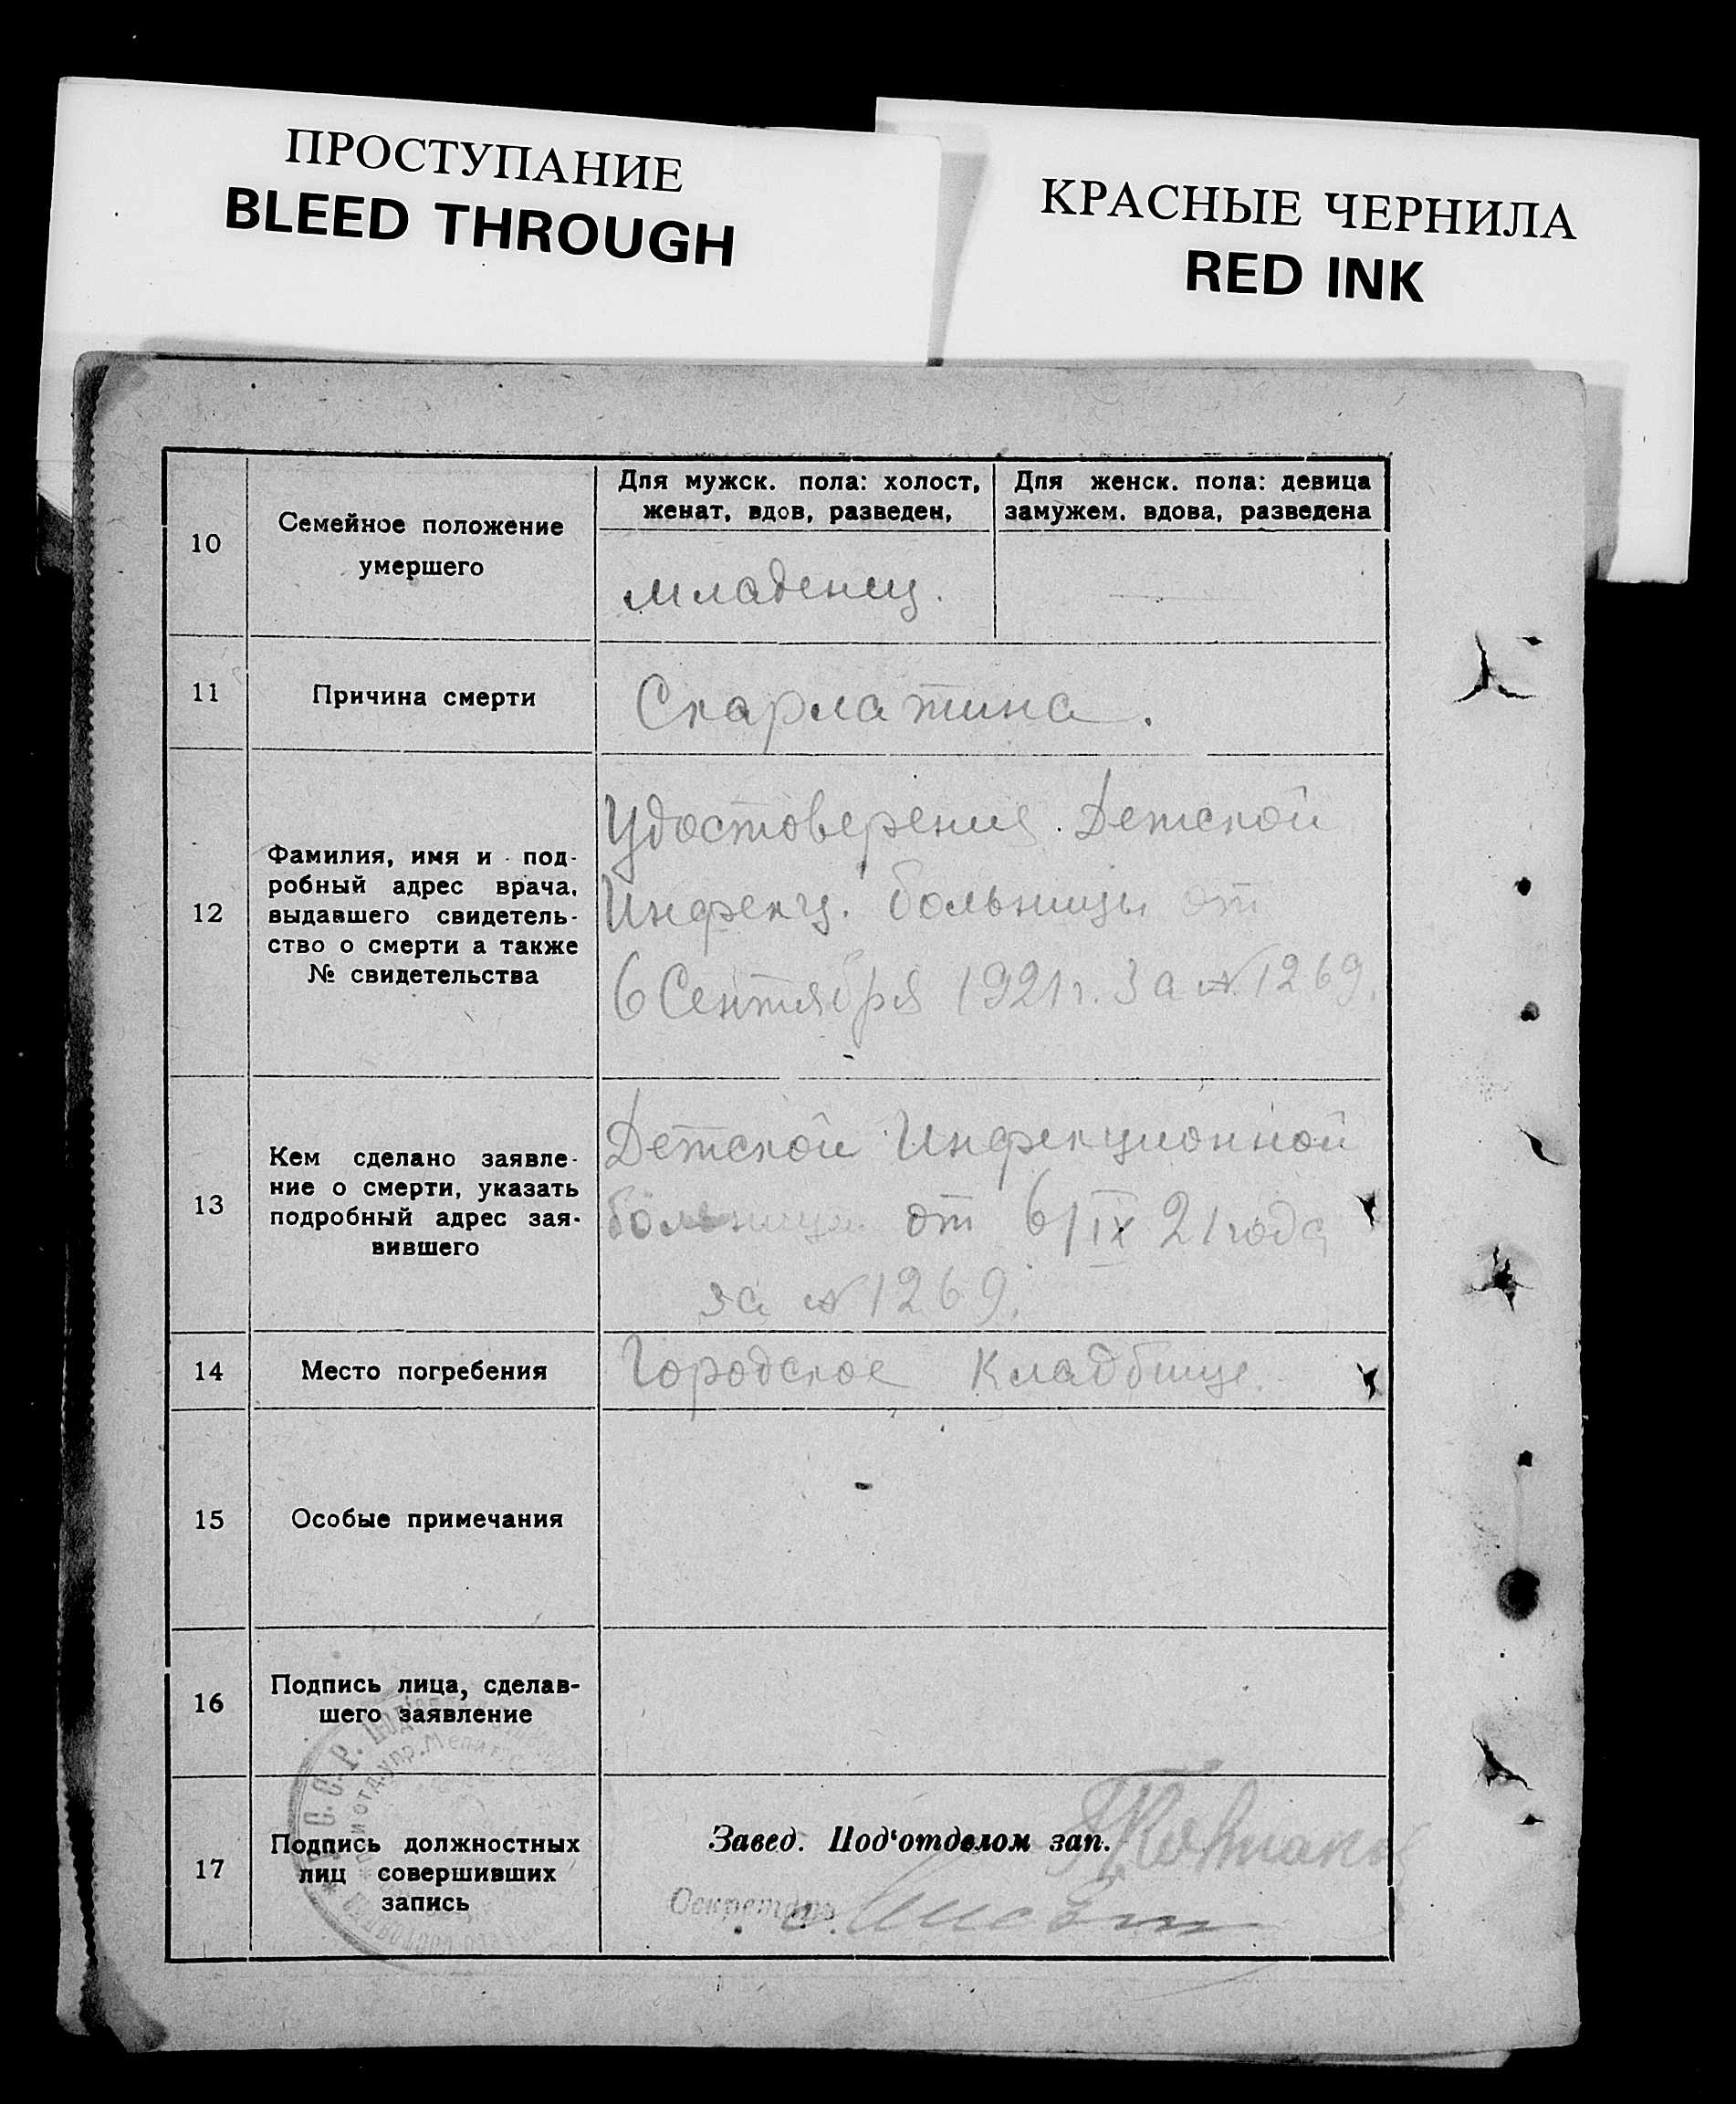 ПРОСТУПАНИЕ
BLEED THROUGH
КРАСНЫЕ ЧЕРНИЛА
RED INK
10
Семейное положение
умершего
Для мужск. пола: холост,
женат, вдов, разведен,
Для женск. пола: девица
замужем. вдова, разведена
младенец.
11
Причина смерти
Скарлатина.
12
Фамилия, имя и под-
робный адрес врача,
выдавшего свидетель-
ство о смерти а также
№ свидетельства
Удостоверение Детской
Инфекц. больницы от
6 Сентября 1921 г. За № 1269.
13
Кем сделано заявле-
ние о смерти, указать
подробный адрес зая-
вившего
Детской Инфекционной
больницы от 6/IX 21 года
за № 1269.
14
Место погребения
Городское Кладбище.
15
Особые примечания
16
Подпись лица, сделав-
шего заявление
17
Подпись должностных
лиц совершивших
запись
Завед. Под'отделом зап.
Секретарь